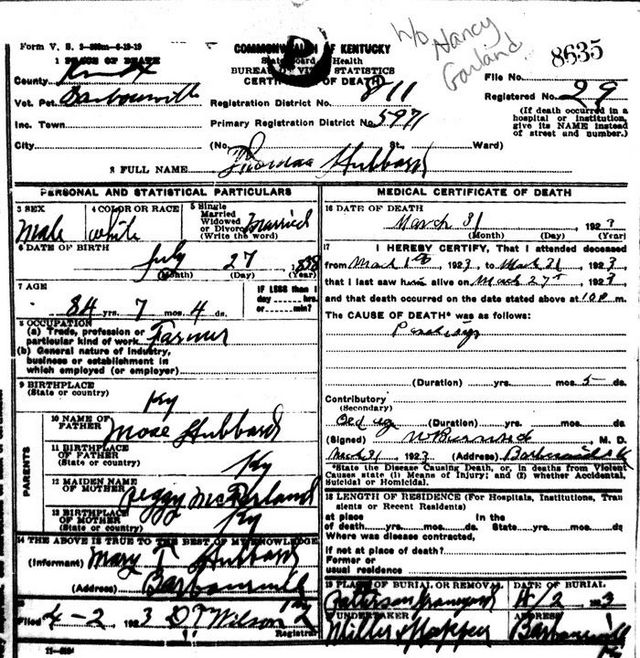 w/o Nancy
Garland
8635
Form V. S.
COMMONWEALTH OF KENTUCKY
State Board of Health
BUREAU OF VITAL STATISTICS
CERTIFICATE OF DEATH
1 PLACE OF DEATH
County Knox
Vot. Pct. Barbourville
Inc. Town
City
Registration District No. 811
Primary Registration District No. 5971
(No. St. Ward)
File No.
Registered No. 29
(If death occurred in a hospital or institution, give its NAME instead of street and number.)
2 FULL NAME Thomas Hubbard
PERSONAL AND STATISTICAL PARTICULARS
3 SEX
Male
4 COLOR OR RACE
white
5 Single
Married
Widowed
or Divorced
(Write the word)
Married
6 DATE OF BIRTH
July 27
(Month) (Day) (Year)
7 AGE
84 yrs. 7 mos. 4 ds.
IF LESS than 1
day hrs.
or min?
8 OCCUPATION
(a) Trade, profession or
particular kind of work Farmer
(b) General nature of industry,
business or establishment in
which employed (or employer)
9 BIRTHPLACE
(State or country)
Ky
PARENTS
10 NAME OF
FATHER
Mose Hubbard
11 BIRTHPLACE
OF FATHER
(State or country)
Ky
12 MAIDEN NAME
OF MOTHER
Peggy
13 BIRTHPLACE
OF MOTHER
(State or country)
Ky
14 THE ABOVE IS TRUE TO THE BEST OF MY KNOWLEDGE
(Informant) Mary T Hubbard
(Address) Barbourville
15
Filed 4-2 1923 D T Wilson
Registrar
MEDICAL CERTIFICATE OF DEATH
16 DATE OF DEATH
March 31 1923
(Month) (Day) (Year)
17 I HEREBY CERTIFY, That I attended deceased
from March 1st 1923, to March 31, 1923,
that I last saw him alive on March 27th, 1923,
and that death occurred on the date stated above at m.
The CAUSE OF DEATH* was as follows:
Paralysis
(Duration) yrs. mos. 5 ds.
Contributory
(Secondary)
Old age
(Duration) yrs. mos. ds.
(Signed) M. D.
March 31 1923 (Address) Barbourville Ky
*State the Disease Causing Death, or, in deaths from Violent
Causes state (1) Means of Injury; and (2) whether Accidental,
Suicidal or Homicidal.
18 LENGTH OF RESIDENCE (For Hospitals, Institutions, Transients or Recent Residents)
at place In the
of death yrs. mos. ds. State yrs. mos. ds.
Where was disease contracted,
if not at place of death?
Former or
usual residence
19 PLACE OF BURIAL OR REMOVAL
Patterson Graveyard
DATE OF BURIAL
4/2 1923
20 UNDERTAKER
Miller Hopper
ADDRESS
Barbourville
Ky